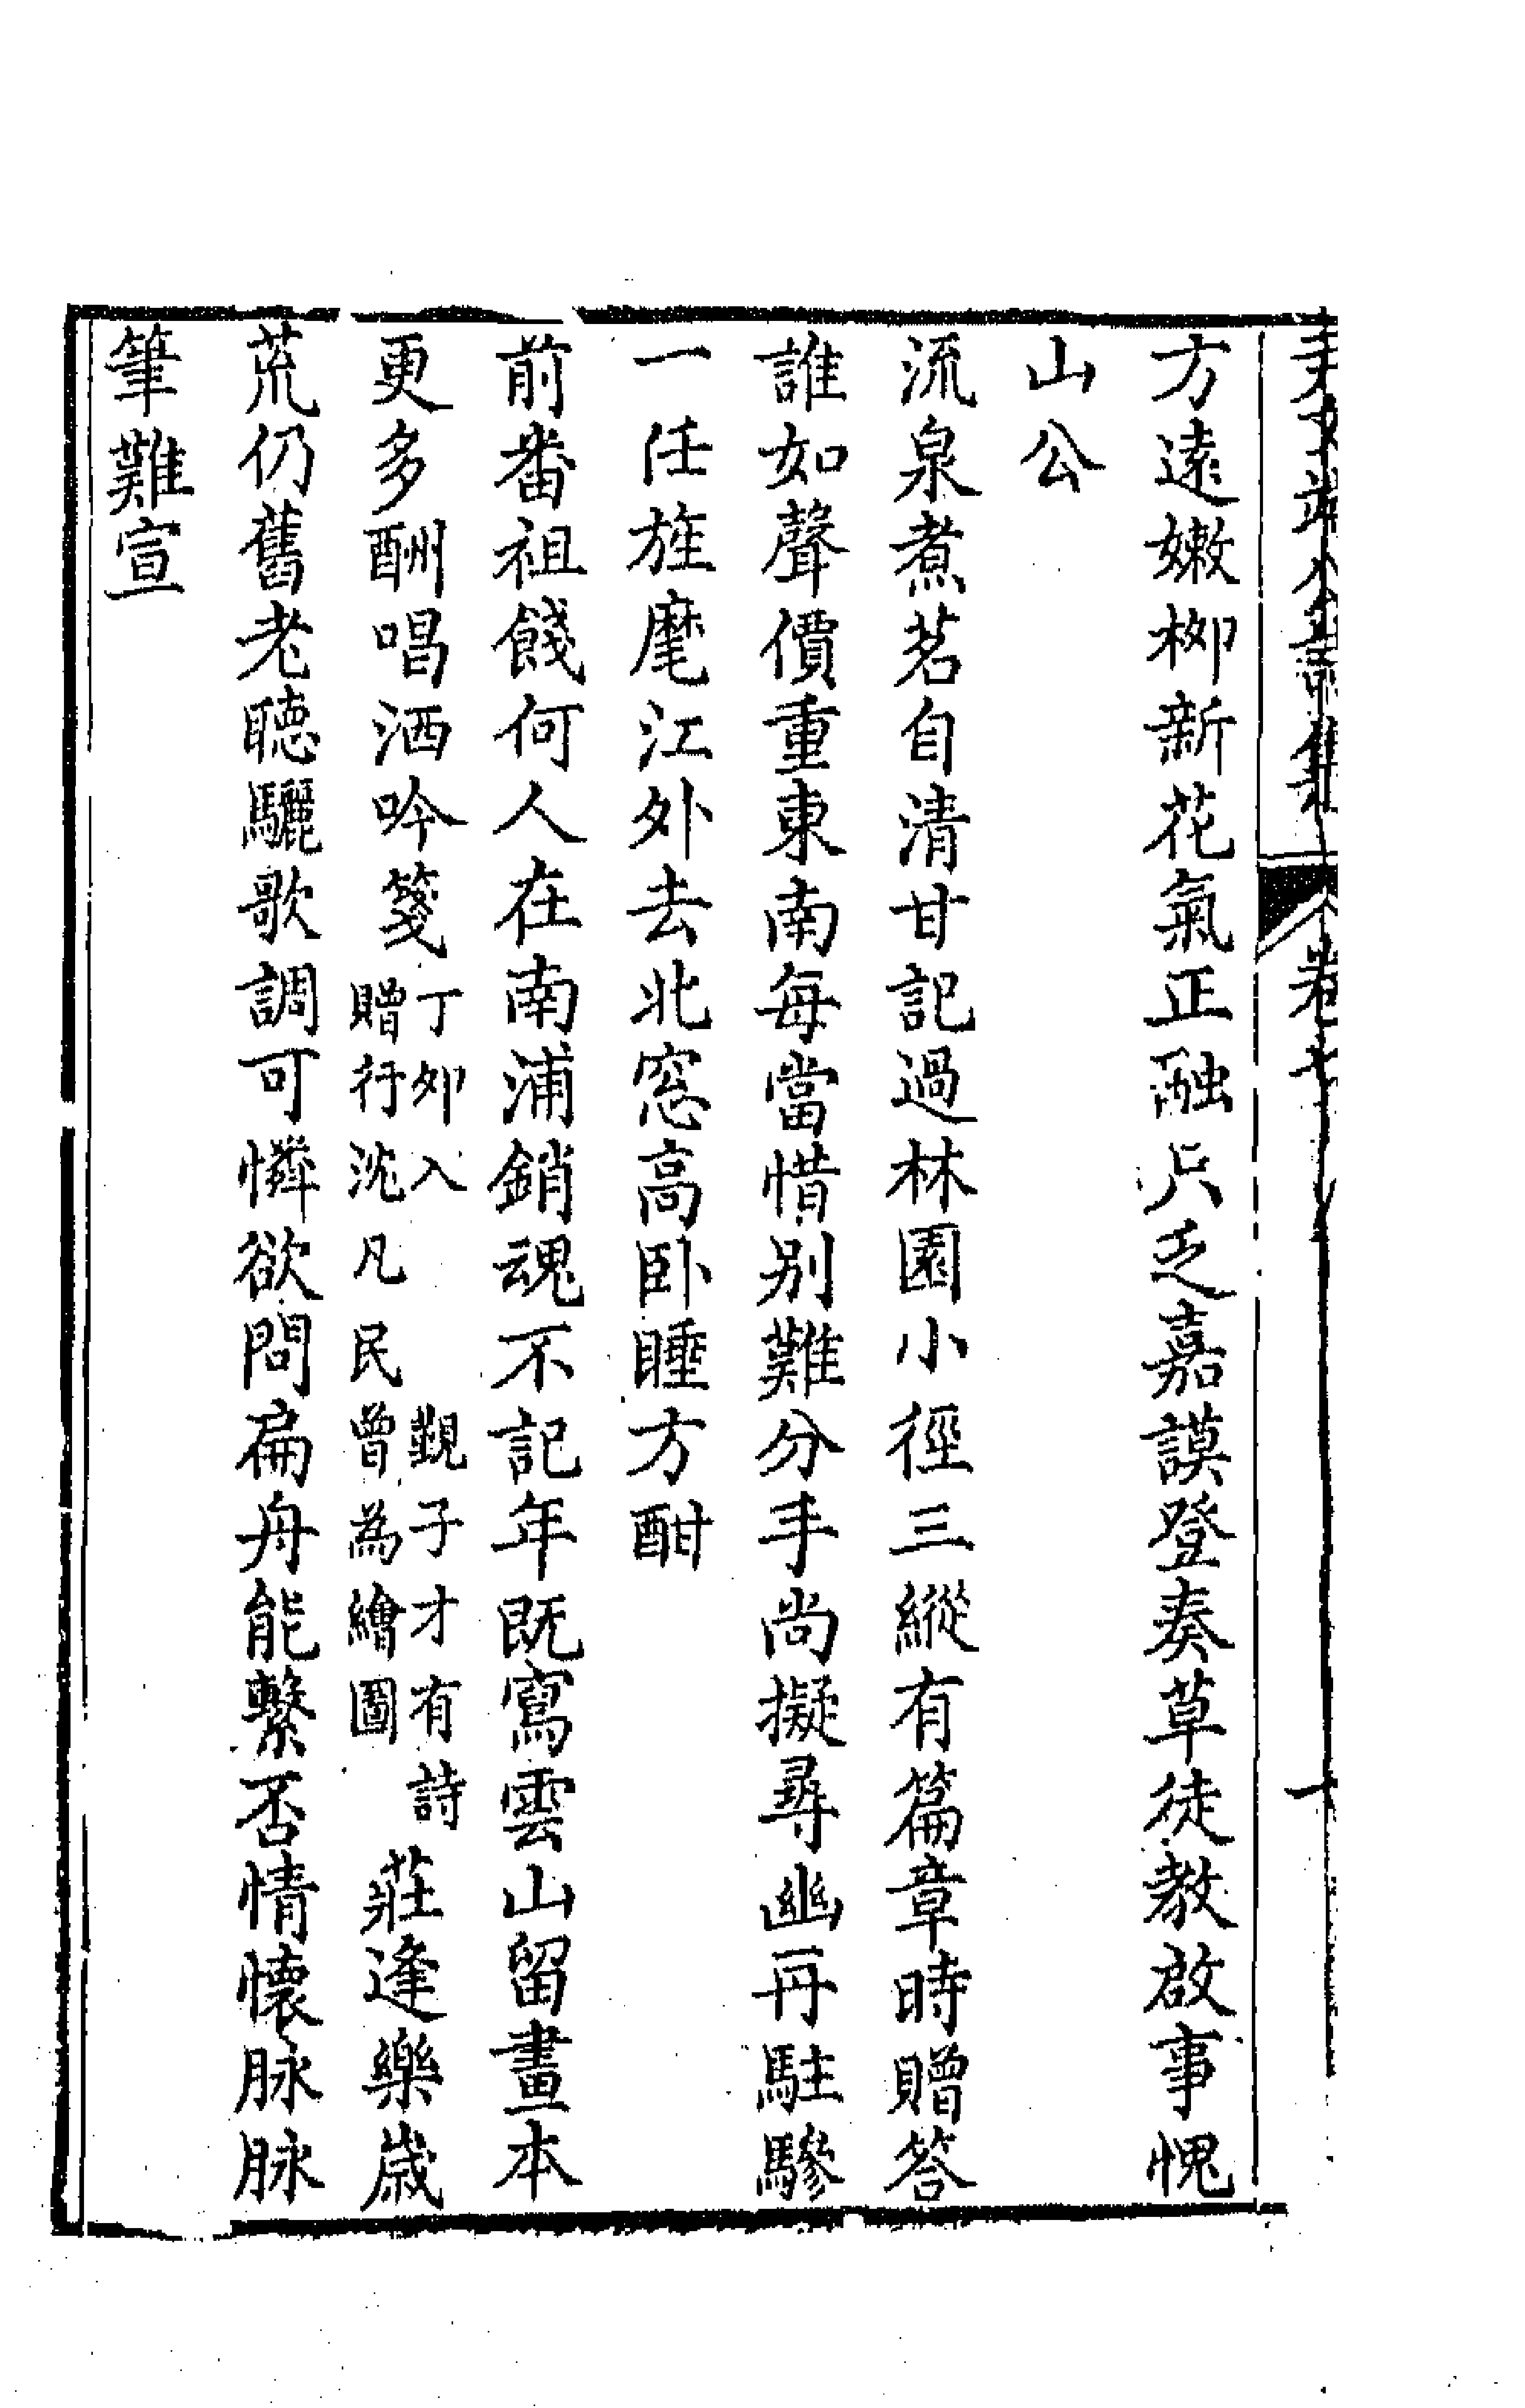 方遠嫩栁新花氣正融只乏嘉謨登奏草徒教啟事愧
山公
流泉煮茗自清甘記過林園小徑三縱有篇章時贈答
誰如聲價重東南每當惜别難分手尚擬尋幽再駐驂
一任旌麾江外去北窓高卧睡方酣
前番祖餞何人在南浦銷魂不記年既寫雲山留畫本
更多酬唱洒吟箋丁卯入覲子才有詩贈行沈凡民曾為繪圖莊逢樂歲
荒仍舊老聴驪歌調可憐欲問扁舟能繫否情懷脉脉
筆難宣